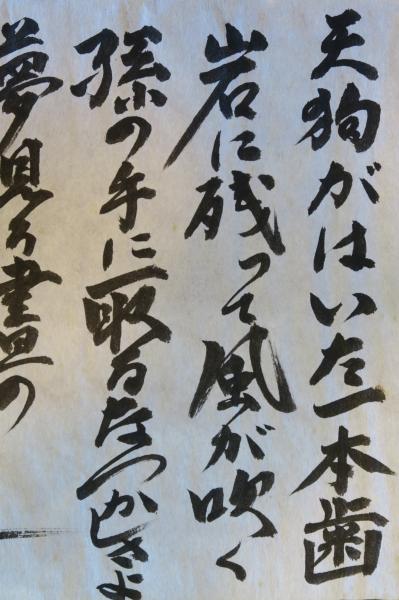 天狗がはいた一本歯
岩に残って風が吹く
孫の手に取るなつかしさよ
夢見る書思の